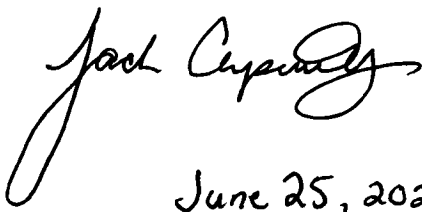 Jack
June 25, 202